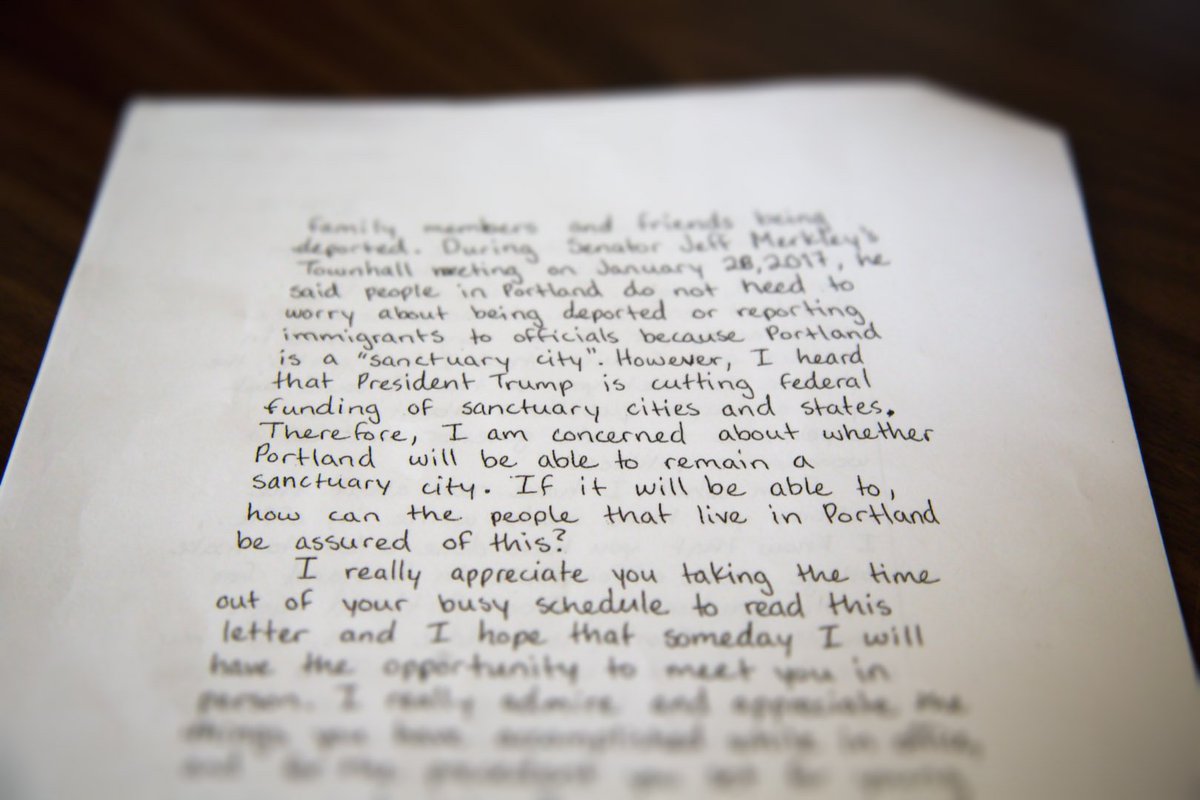 family members and friends being
deported. During Senator Jeff Merkley's
Townhall meeting on January 28, 2017, he
said people in Portland do not need to
worry about being deported or reporting
immigrants to officials because Portland
is a "sanctuary city". However, I heard
that President Trump is cutting federal
funding of sanctuary cities and states.
Therefore, I am concerned about whether
Portland will be able to remain a
sanctuary city. If it will be able to,
how can the people that live in Portland
be assured of this?
I really appreciate you taking the time
out of your busy schedule to read this
letter and I hope that someday I will
have the opportunity to meet you in
person. I really admire and appreciate the
things you have accomplished while in office,
and